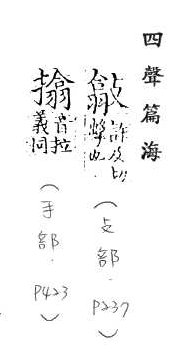 四聲篇海
許及切
擊也
(攴部. P237)
㩉
音拉
義同
(手部. P423)